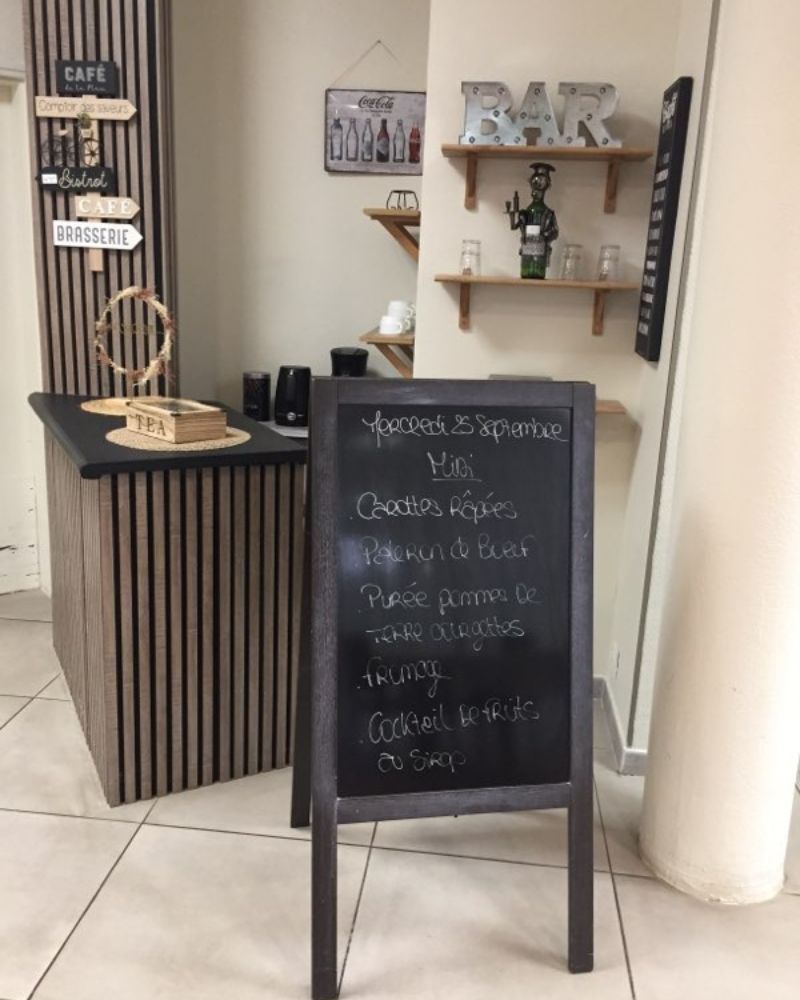 CAFÉ
Comptoir des saveurs
Bistrot
CAFÉ
BRASSERIE
Coca-Cola
BAR
TEA
Mercredi 25 Septembre
Midi
. Carottes Râpées
de Boeuf
. Purée pommes de
terre courgettes
. Fromage
. Cocktail de fruits
au Sirop